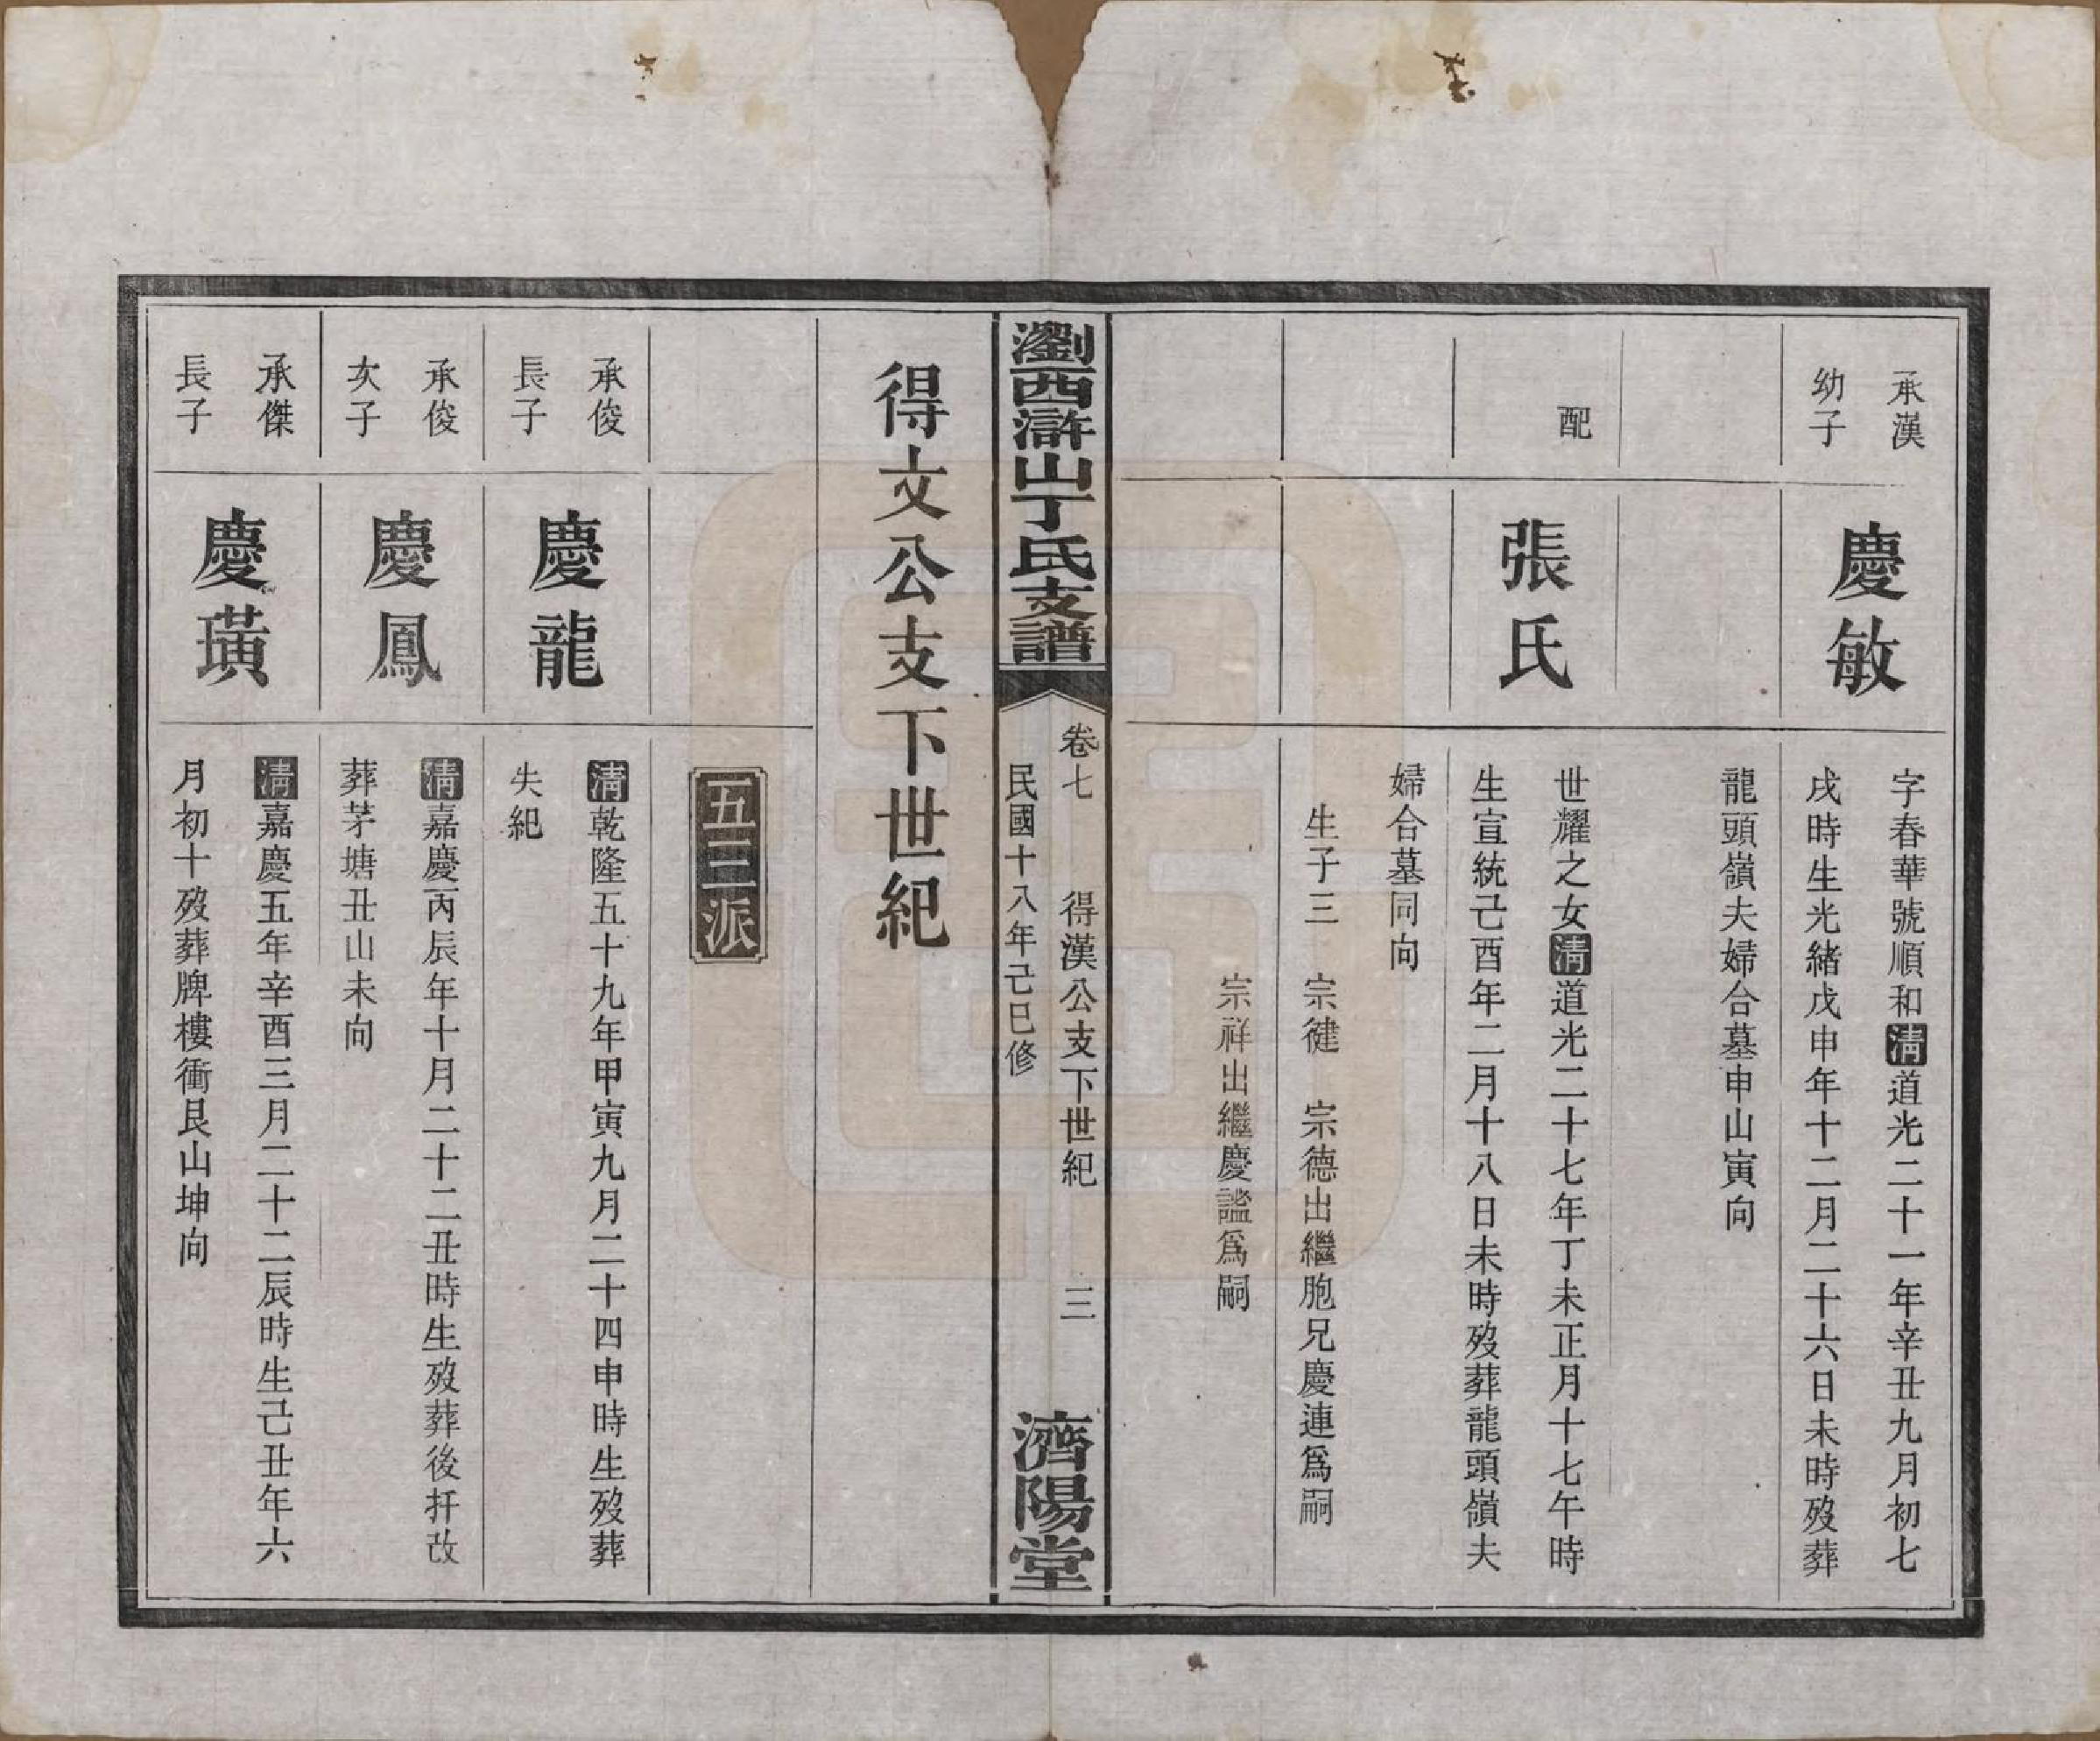 承漢
幼子
慶敏
字春華號順和清道光二十一年辛丑九月初七
戌時生光緒戊申年十二月二十六日未時歿葬
龍頭嶺夫婦合墓申山寅向
配
張氏
世耀之女清道光二十七年丁未正月十七午時
生宣統己酉年二月十八日未時歿葬龍頭嶺夫
婦合墓同向
生子三 宗健 宗德出繼胞兄慶連為嗣
宗祥出繼慶謐為嗣
瀏西滸山丁氏支譜
卷七 得漢公支下世紀 三
民國十八年己巳修
濟陽堂
得文公支下世紀
五三派
承俊
長子
慶龍
清乾隆五十九年甲寅九月二十四申時生歿葬
失紀
承俊
次子
慶鳳
清嘉慶丙辰年十月二十二丑時生歿葬後扦改
葬茅塘丑山未向
承傑
長子
慶璜
清嘉慶五年辛酉三月二十二辰時生己丑年六
月初十歿葬牌樓衝艮山坤向